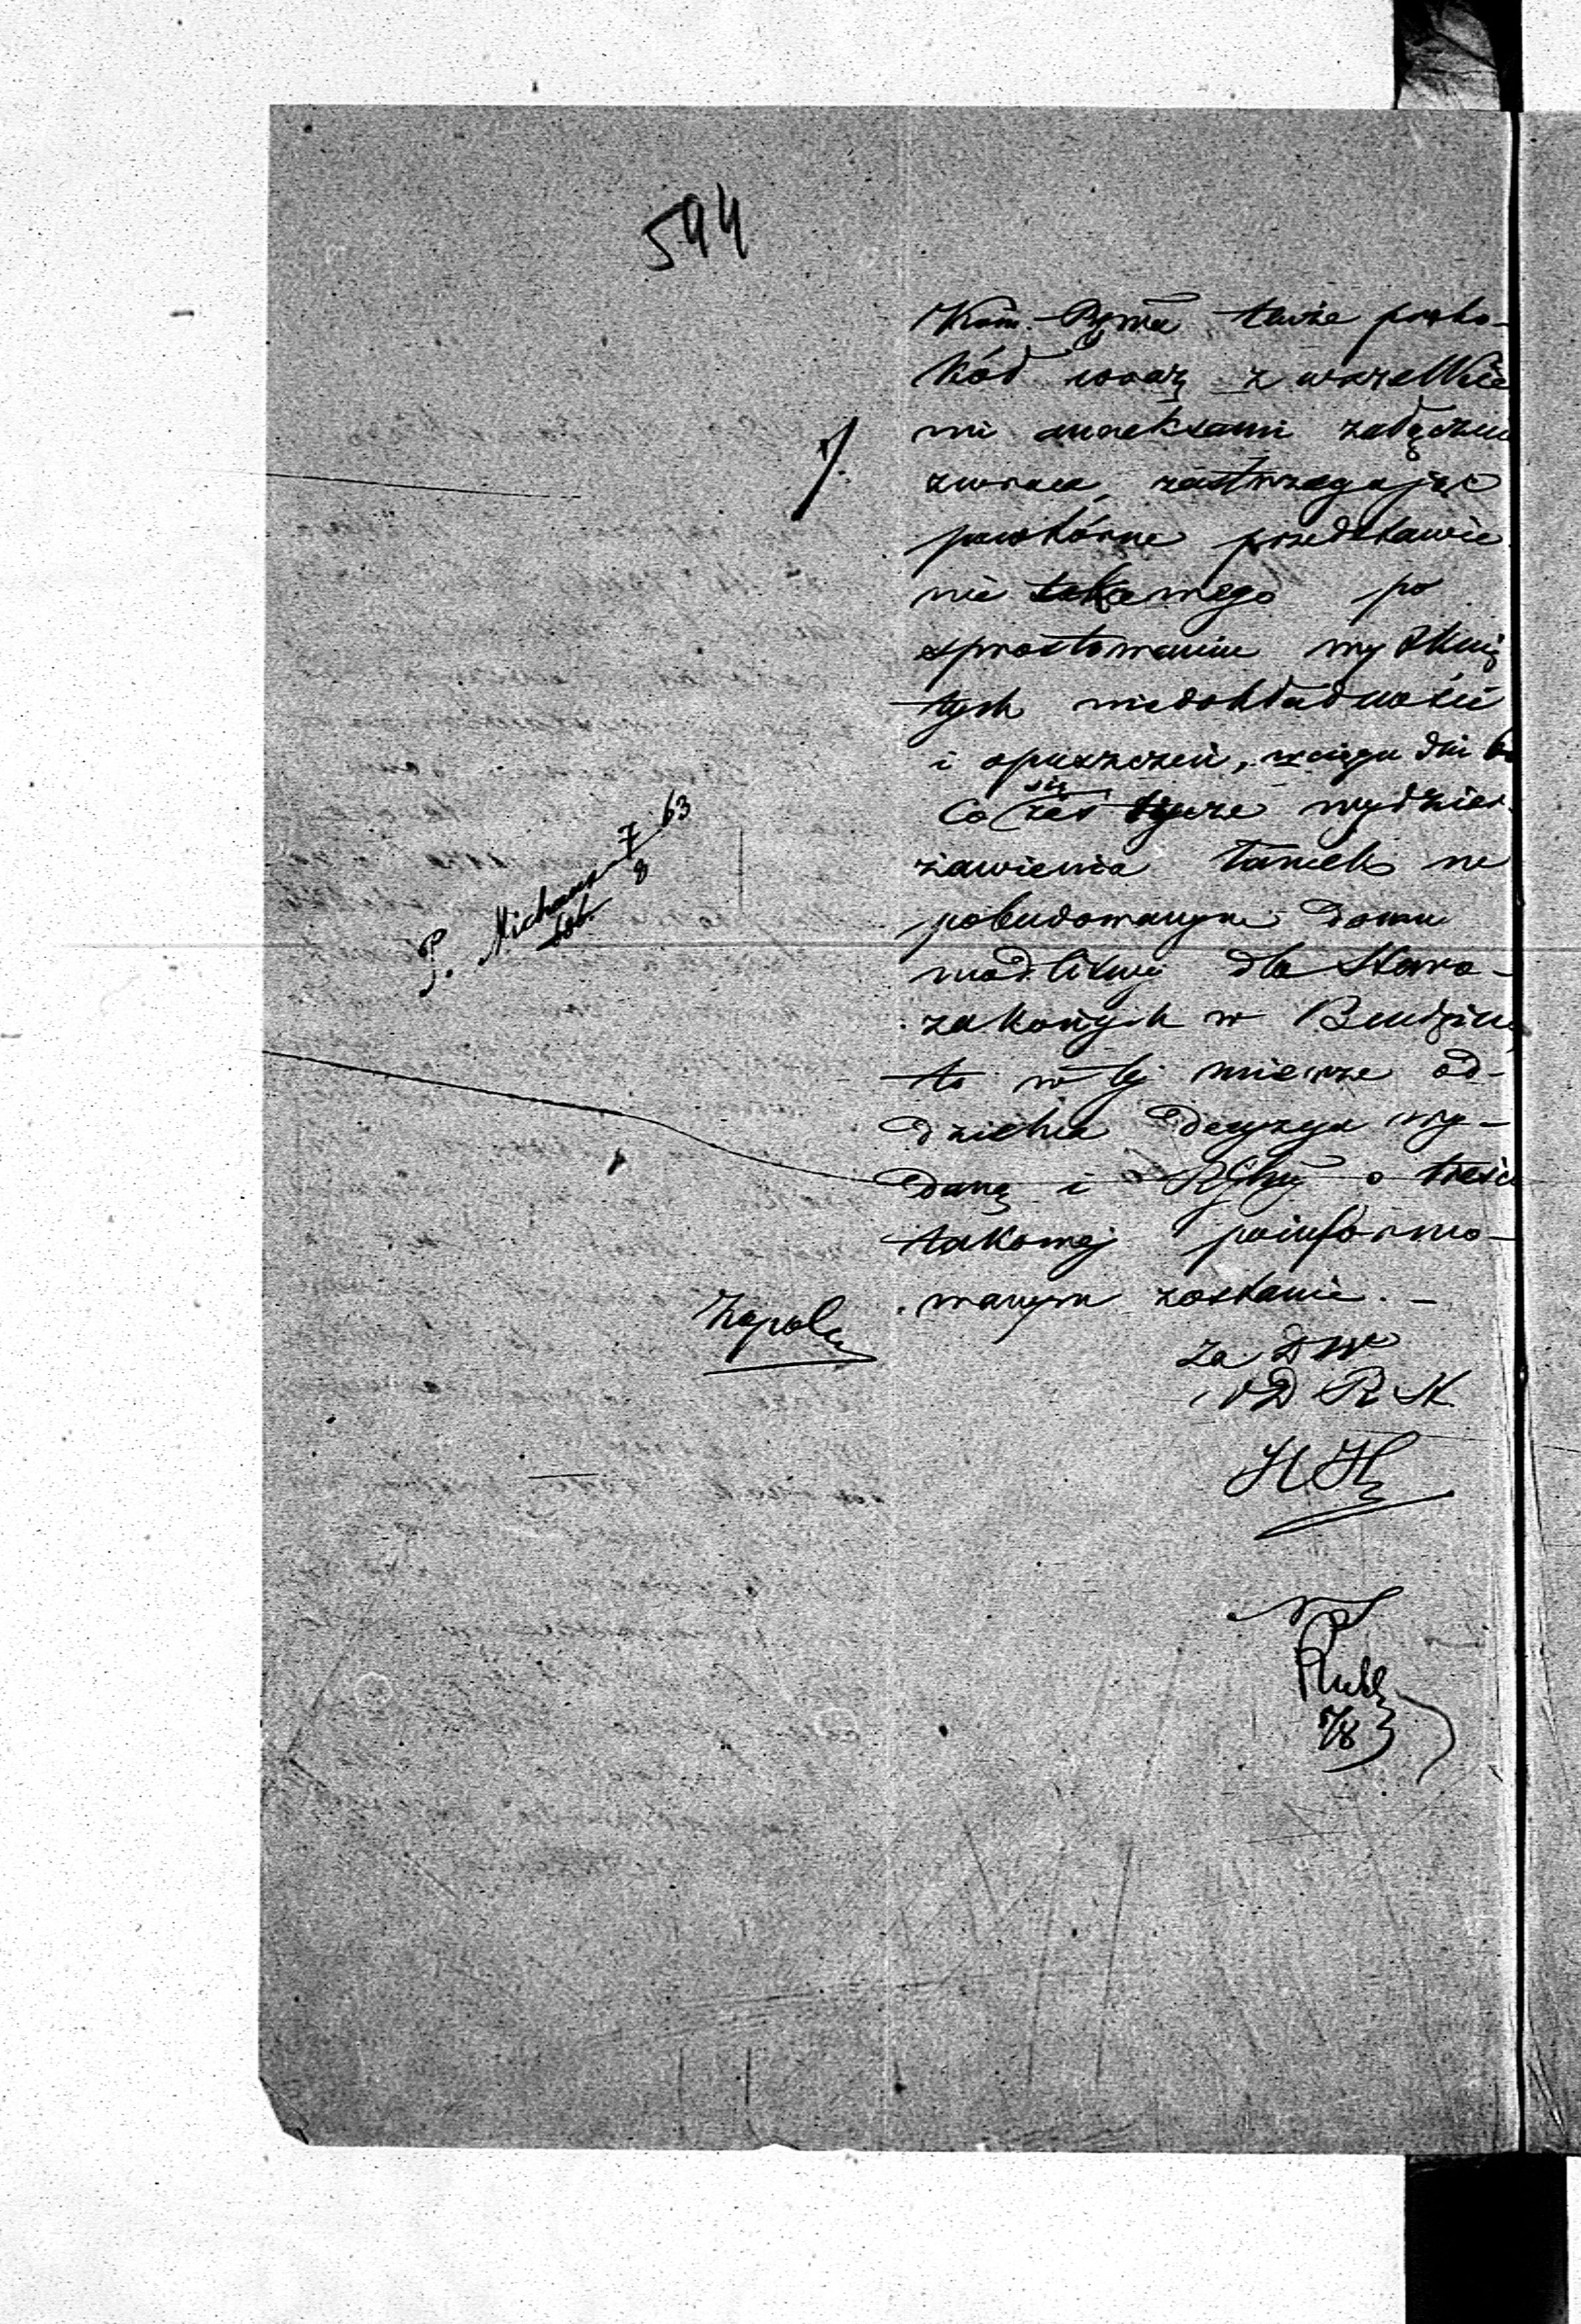 544
Kom. Rząwa tenże proto-
kół wraz z wszelkie
mi aneksami załączeni
zwraca, zastrzegając
powtórne przedstawie
nie takowego po
sprostowaniu wytknię
tych niedokładności
i opuszczeń, w ciągu dni
Co się zaś tycze wydzier-
żawienia ławek w
pobudowanym domu
modlitwy dla Staro-
zakonych w Bendzinie
to w tej mierze od-
dzielna decyzya wy-
daną i o treści
takowej poinformo-
wanym zostanie. -
P. 7/8 63
Za DW
R K.
7/8